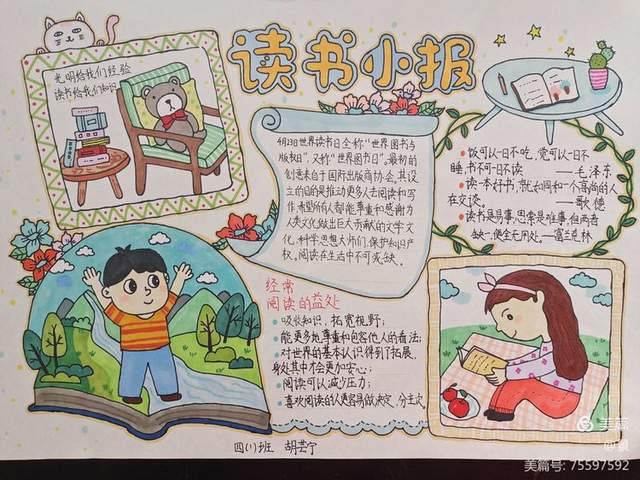 读书小报
光明给我们经验
读书给我们知识
4月23世界读书日全称“世界图书与
版权日”，又称“世界图书日”。最初的
创意来自于国际出版商协会，其设
立的目的是推动更多人去阅读和写
作，希望所有人都能尊重和感谢为
人类文化做出巨大贡献的文学文
化、科学思想大师们，保护知识产
权。阅读在生活中不可或缺。
饭可以一日不吃，觉可以一日不
睡，书不可一日不读 ——毛泽东
读一本好书，就如同和一个高尚的人
在交谈。 ——歌德
读书是易事，思索是难事，但两者
缺一，便全无用处。——富兰克林
经常
阅读的益处
吸收知识，拓宽视野；
能更多地尊重和包容他人的看法；
对世界的基本认识得到了拓展，
身处其中才会更加安心；
阅读可以减少压力；
喜欢阅读的人更容易做决定，分主次。
四(1)班 胡芸宁
美篇
美篇号: 75597592